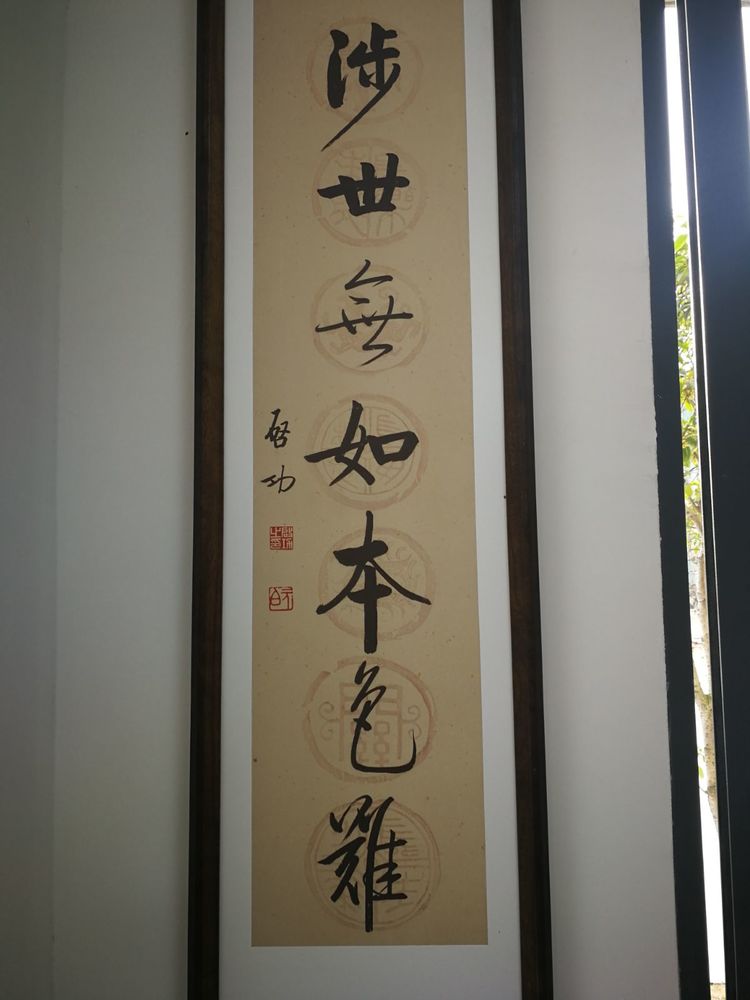 涉世無如本色難
啓功